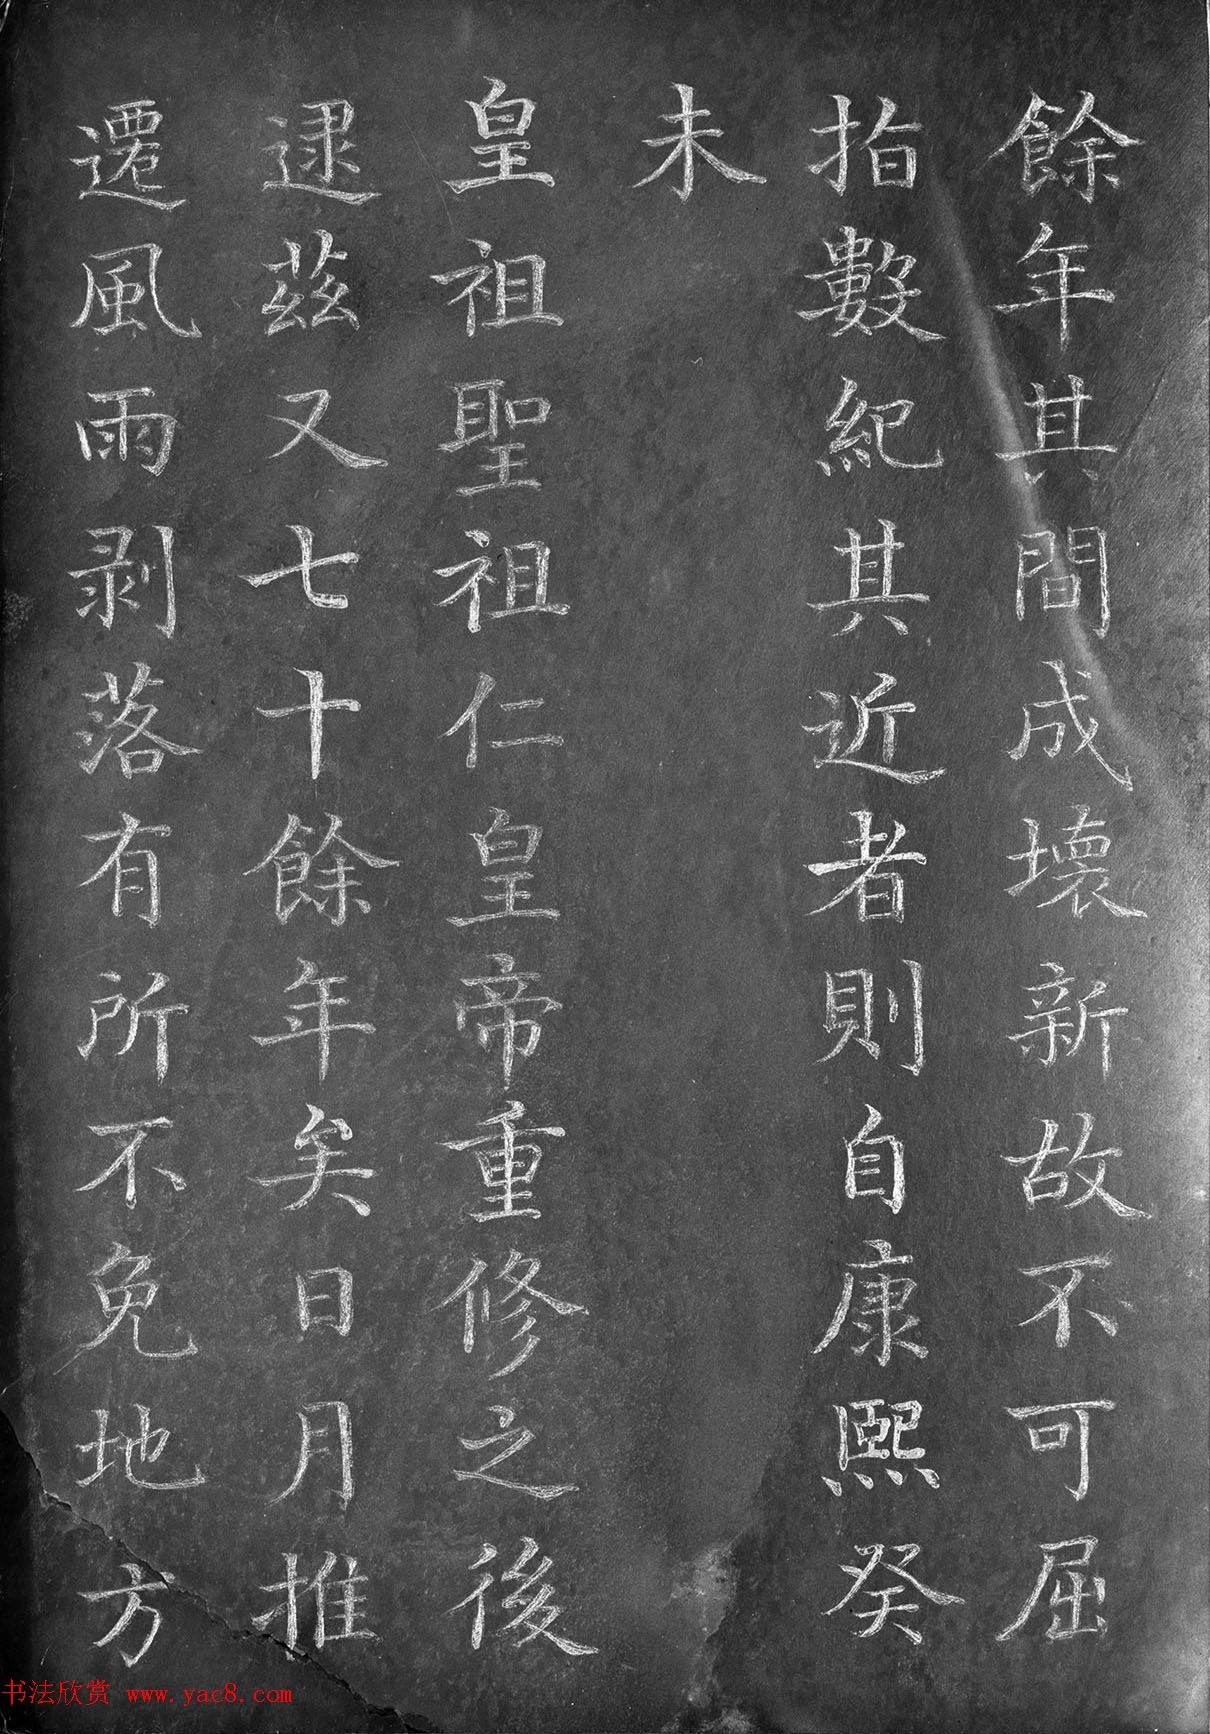 餘年其間成壞新故不可屈
指數紀其近者則自康熙癸
未
皇祖聖祖仁皇帝重修之後
逮茲又七十餘年矣日月推
遷風雨剥落有所不免地方
书法欣赏 www.yac8.com